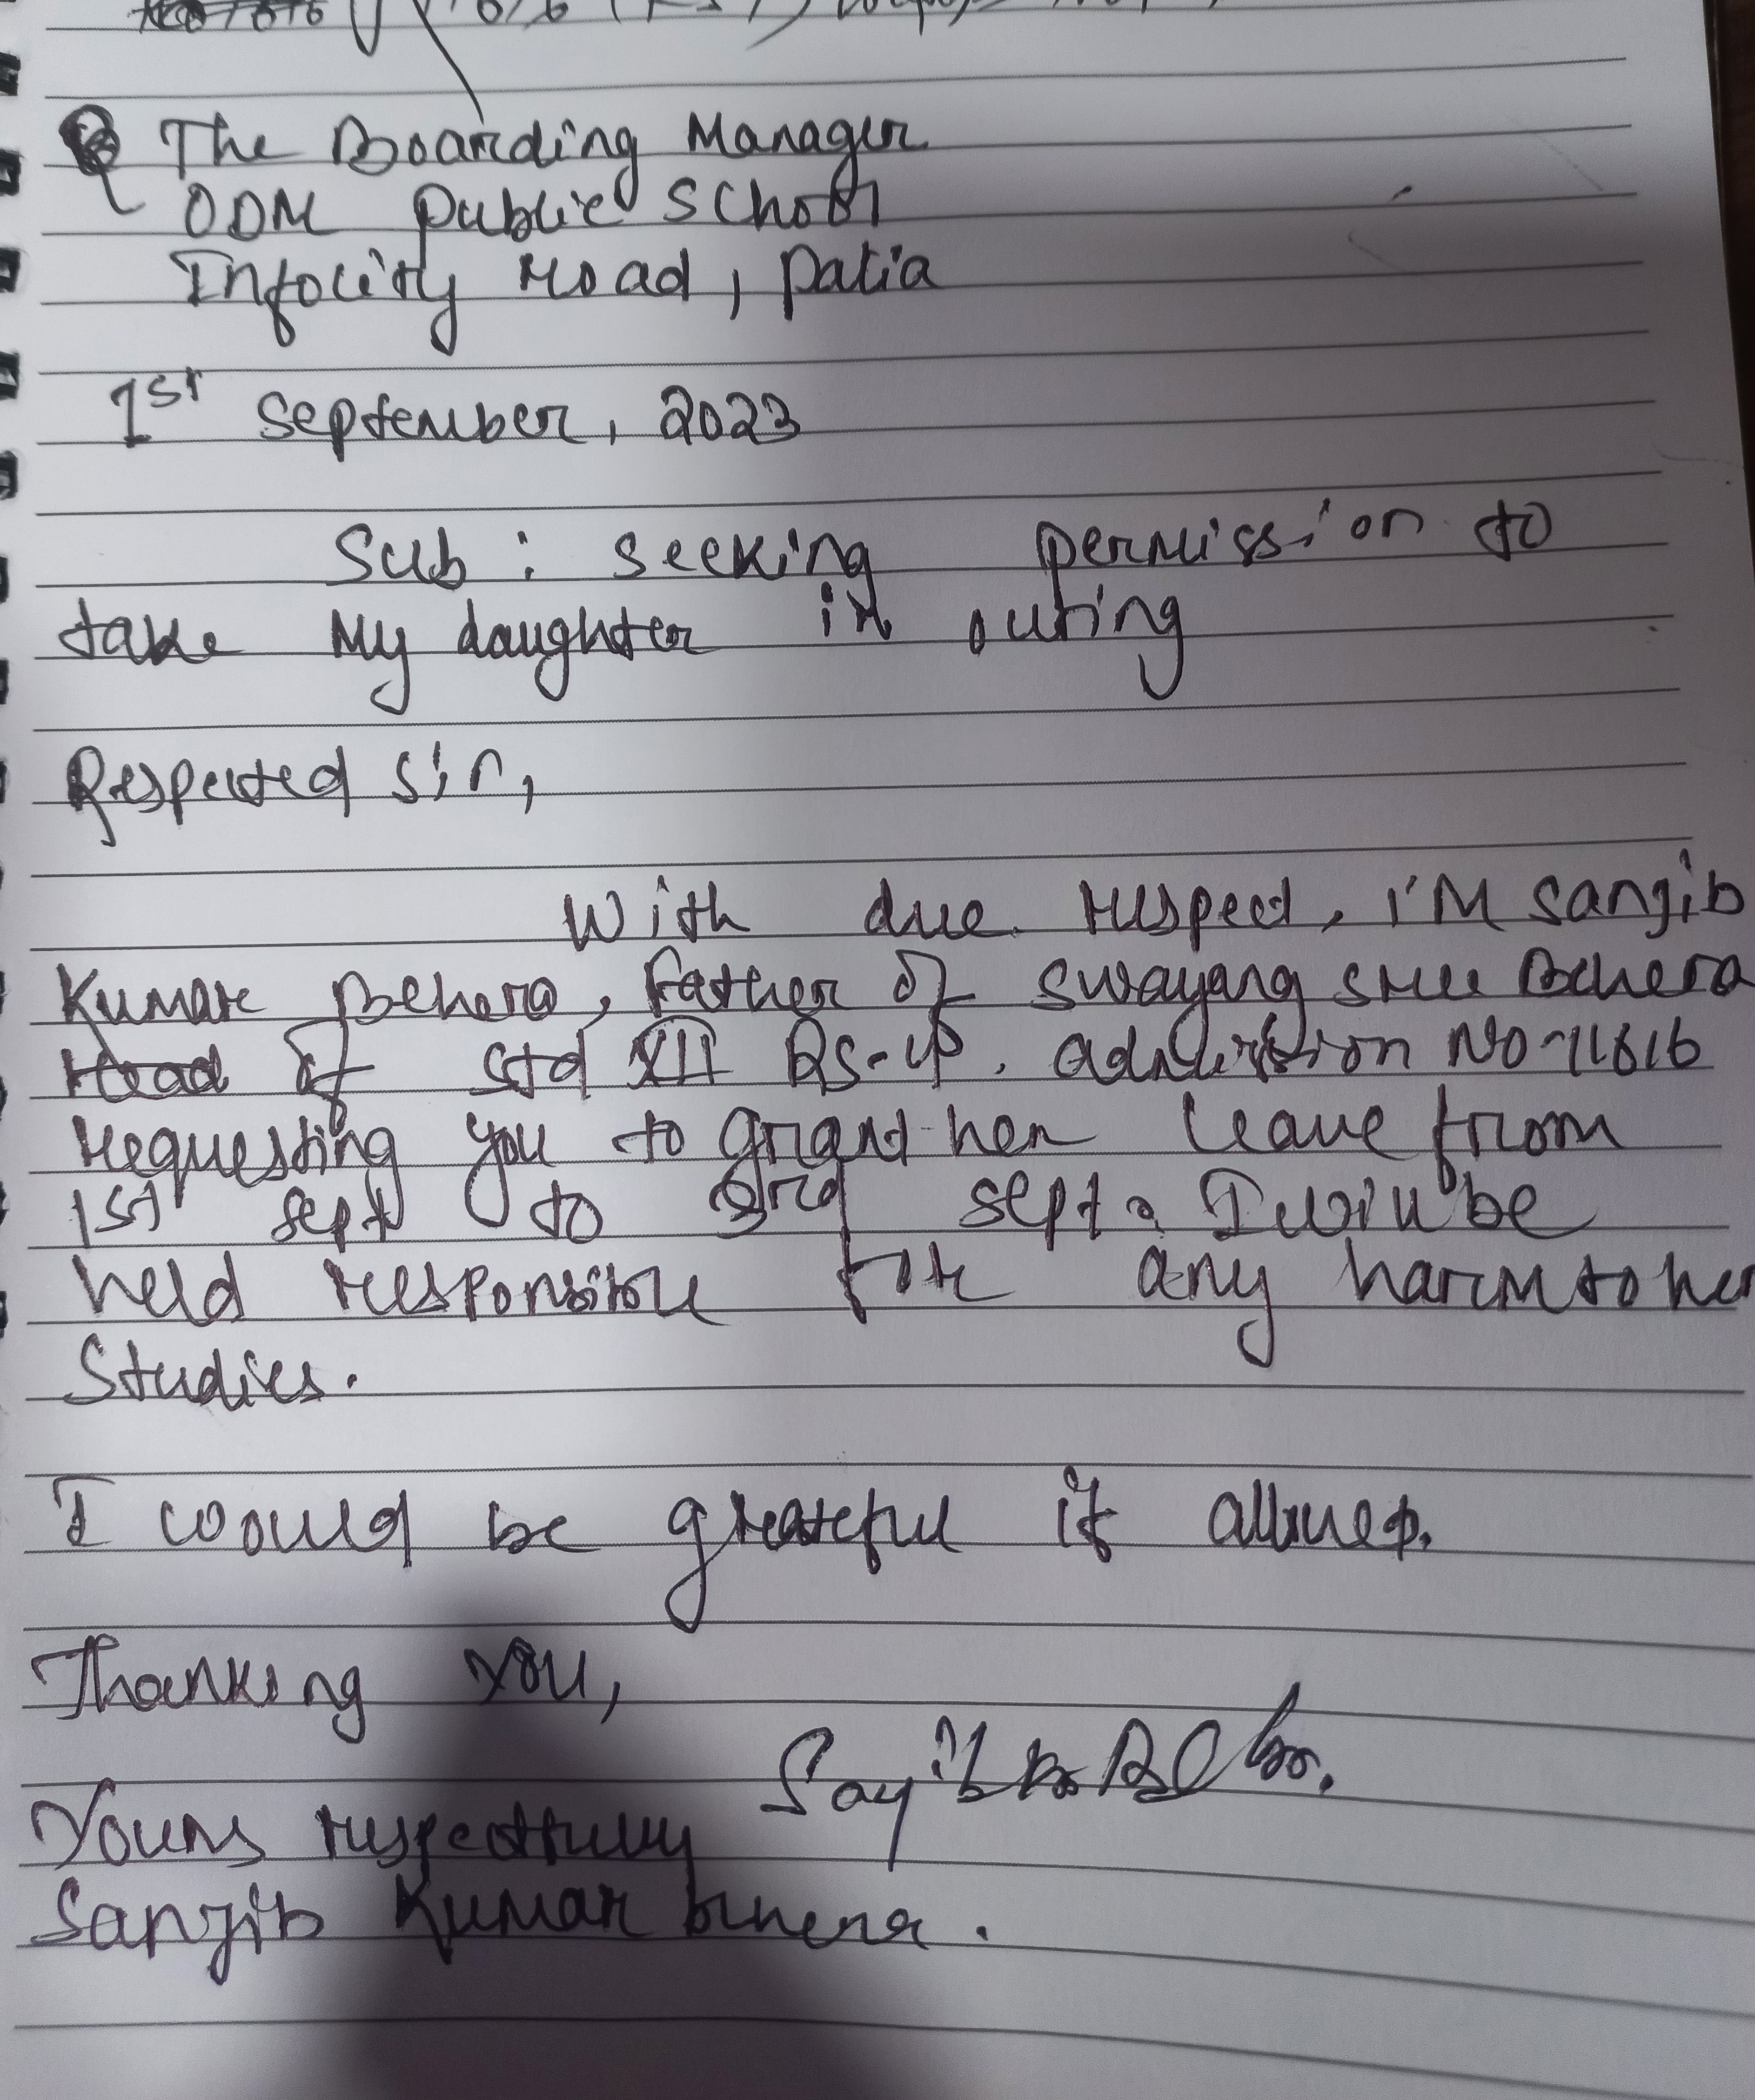 The Boarding Manager
ODM Public School
Infocity road, patia
1st september, 2023
Sub : seeking permission to
take My daughter in outing
Respected sir,
With due respect, I'M Sangib
Kumar Behera, Father of Swayang shree Behera
of std XII admission NO-11616
requesting you to grant her leave from
1st sept to 3rd sept. I will be
held responsible for any harm to her
Studies.
I would be grateful if allowed.
Thanking You,
Yours respectfully
Sangib Kumar behera.